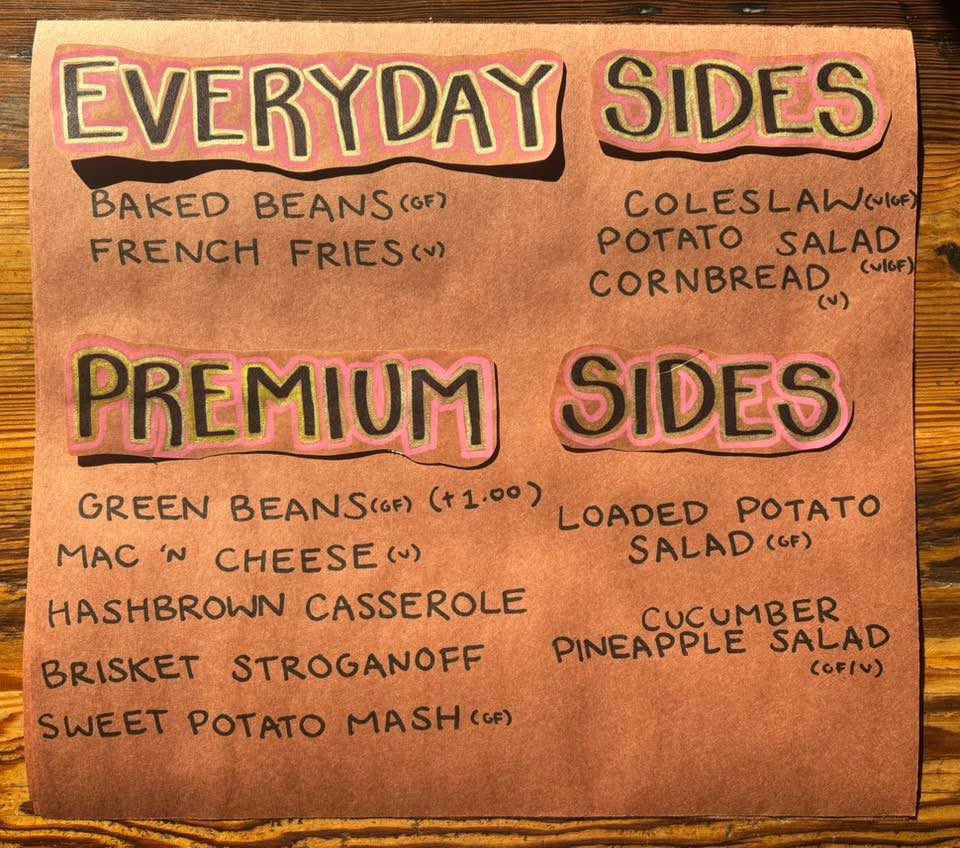 EVERYDAY SIDES
BAKED BEANS (GF)
FRENCH FRIES (V)
COLESLAW (V/GF)
POTATO SALAD
(V/GF)
CORNBREAD
(V)
PREMIUM SIDES
GREEN BEANS (GF) (+1.00)
MAC 'N CHEESE (V)
HASHBROWN CASSEROLE
BRISKET STROGANOFF
SWEET POTATO MASH (GF)
LOADED POTATO
SALAD (GF)
CUCUMBER
PINEAPPLE SALAD
(GF/V)